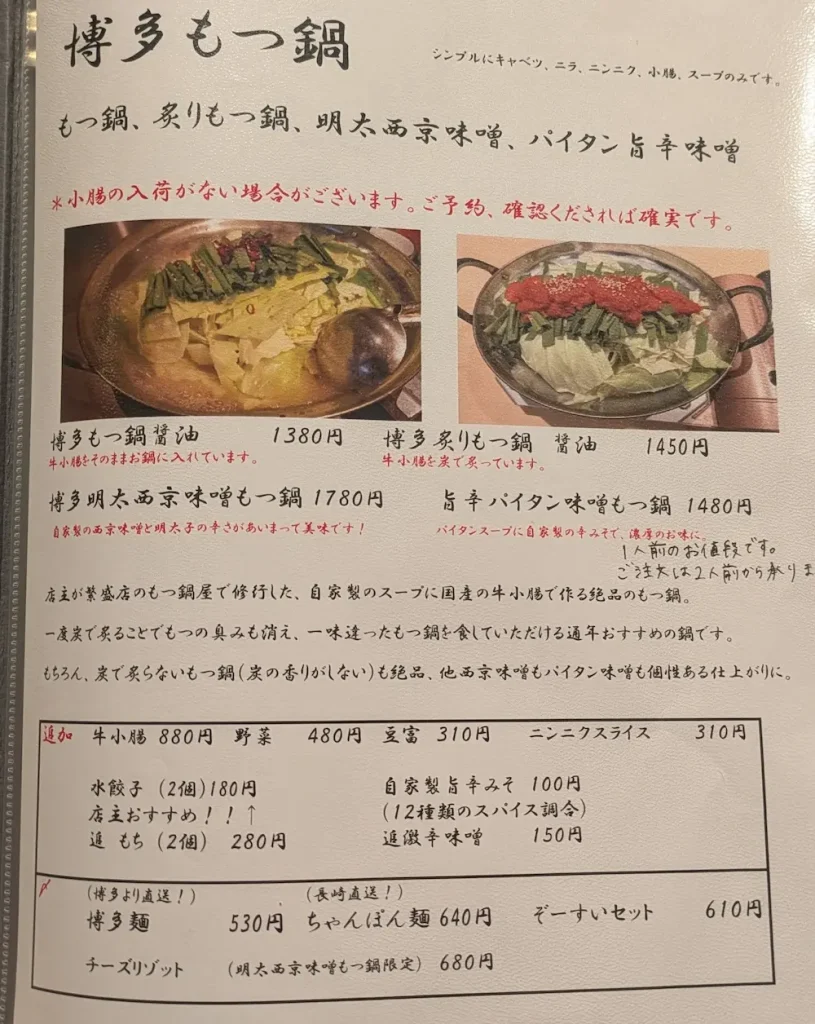 博多もつ鍋
シンプルにキャベツ、ニラ、ニンニク、小腸、スープのみです。
もつ鍋、炙りもつ鍋、明太西京味噌、パイタン旨辛味噌
*小腸の入荷がない場合がございます。ご予約、確認くだされば確実です。
博多もつ鍋醤油 1380円
牛小腸をそのままお鍋に入れています。
博多炙りもつ鍋 醤油 1450円
牛小腸を炭で炙っています。
博多明太西京味噌もつ鍋 1780円
自家製の西京味噌と明太子の辛さがあいまって美味です!
旨辛パイタン味噌もつ鍋 1480円
パイタンスープに自家製の辛みそで、濃厚のお味に。
1人前のお値段です。
ご注文は2人前から承りま
店主が繁盛店のもつ鍋屋で修行した、自家製のスープに国産の牛小腸で作る絶品のもつ鍋。
一度炭で炙ることでもつの臭みも消え、一味違ったもつ鍋を食していただける通年おすすめの鍋です。
もちろん、炭で炙らないもつ鍋(炭の香りがしない)も絶品、他西京味噌もパイタン味噌も個性ある仕上がりに。
追加 牛小腸 880円 野菜 480円 豆富 310円 ニンニクスライス 310円
水餃子 (2個)180円 自家製旨辛みそ 100円
店主おすすめ!!↑ (12種類のスパイス調合)
追 もち (2個) 280円 追激辛味噌 150円
〆 (博多より直送!) (長崎直送!)
博多麺 530円 ちゃんぽん麺 640円 ぞーすいセット 610円
チーズリゾット (明太西京味噌もつ鍋限定) 680円